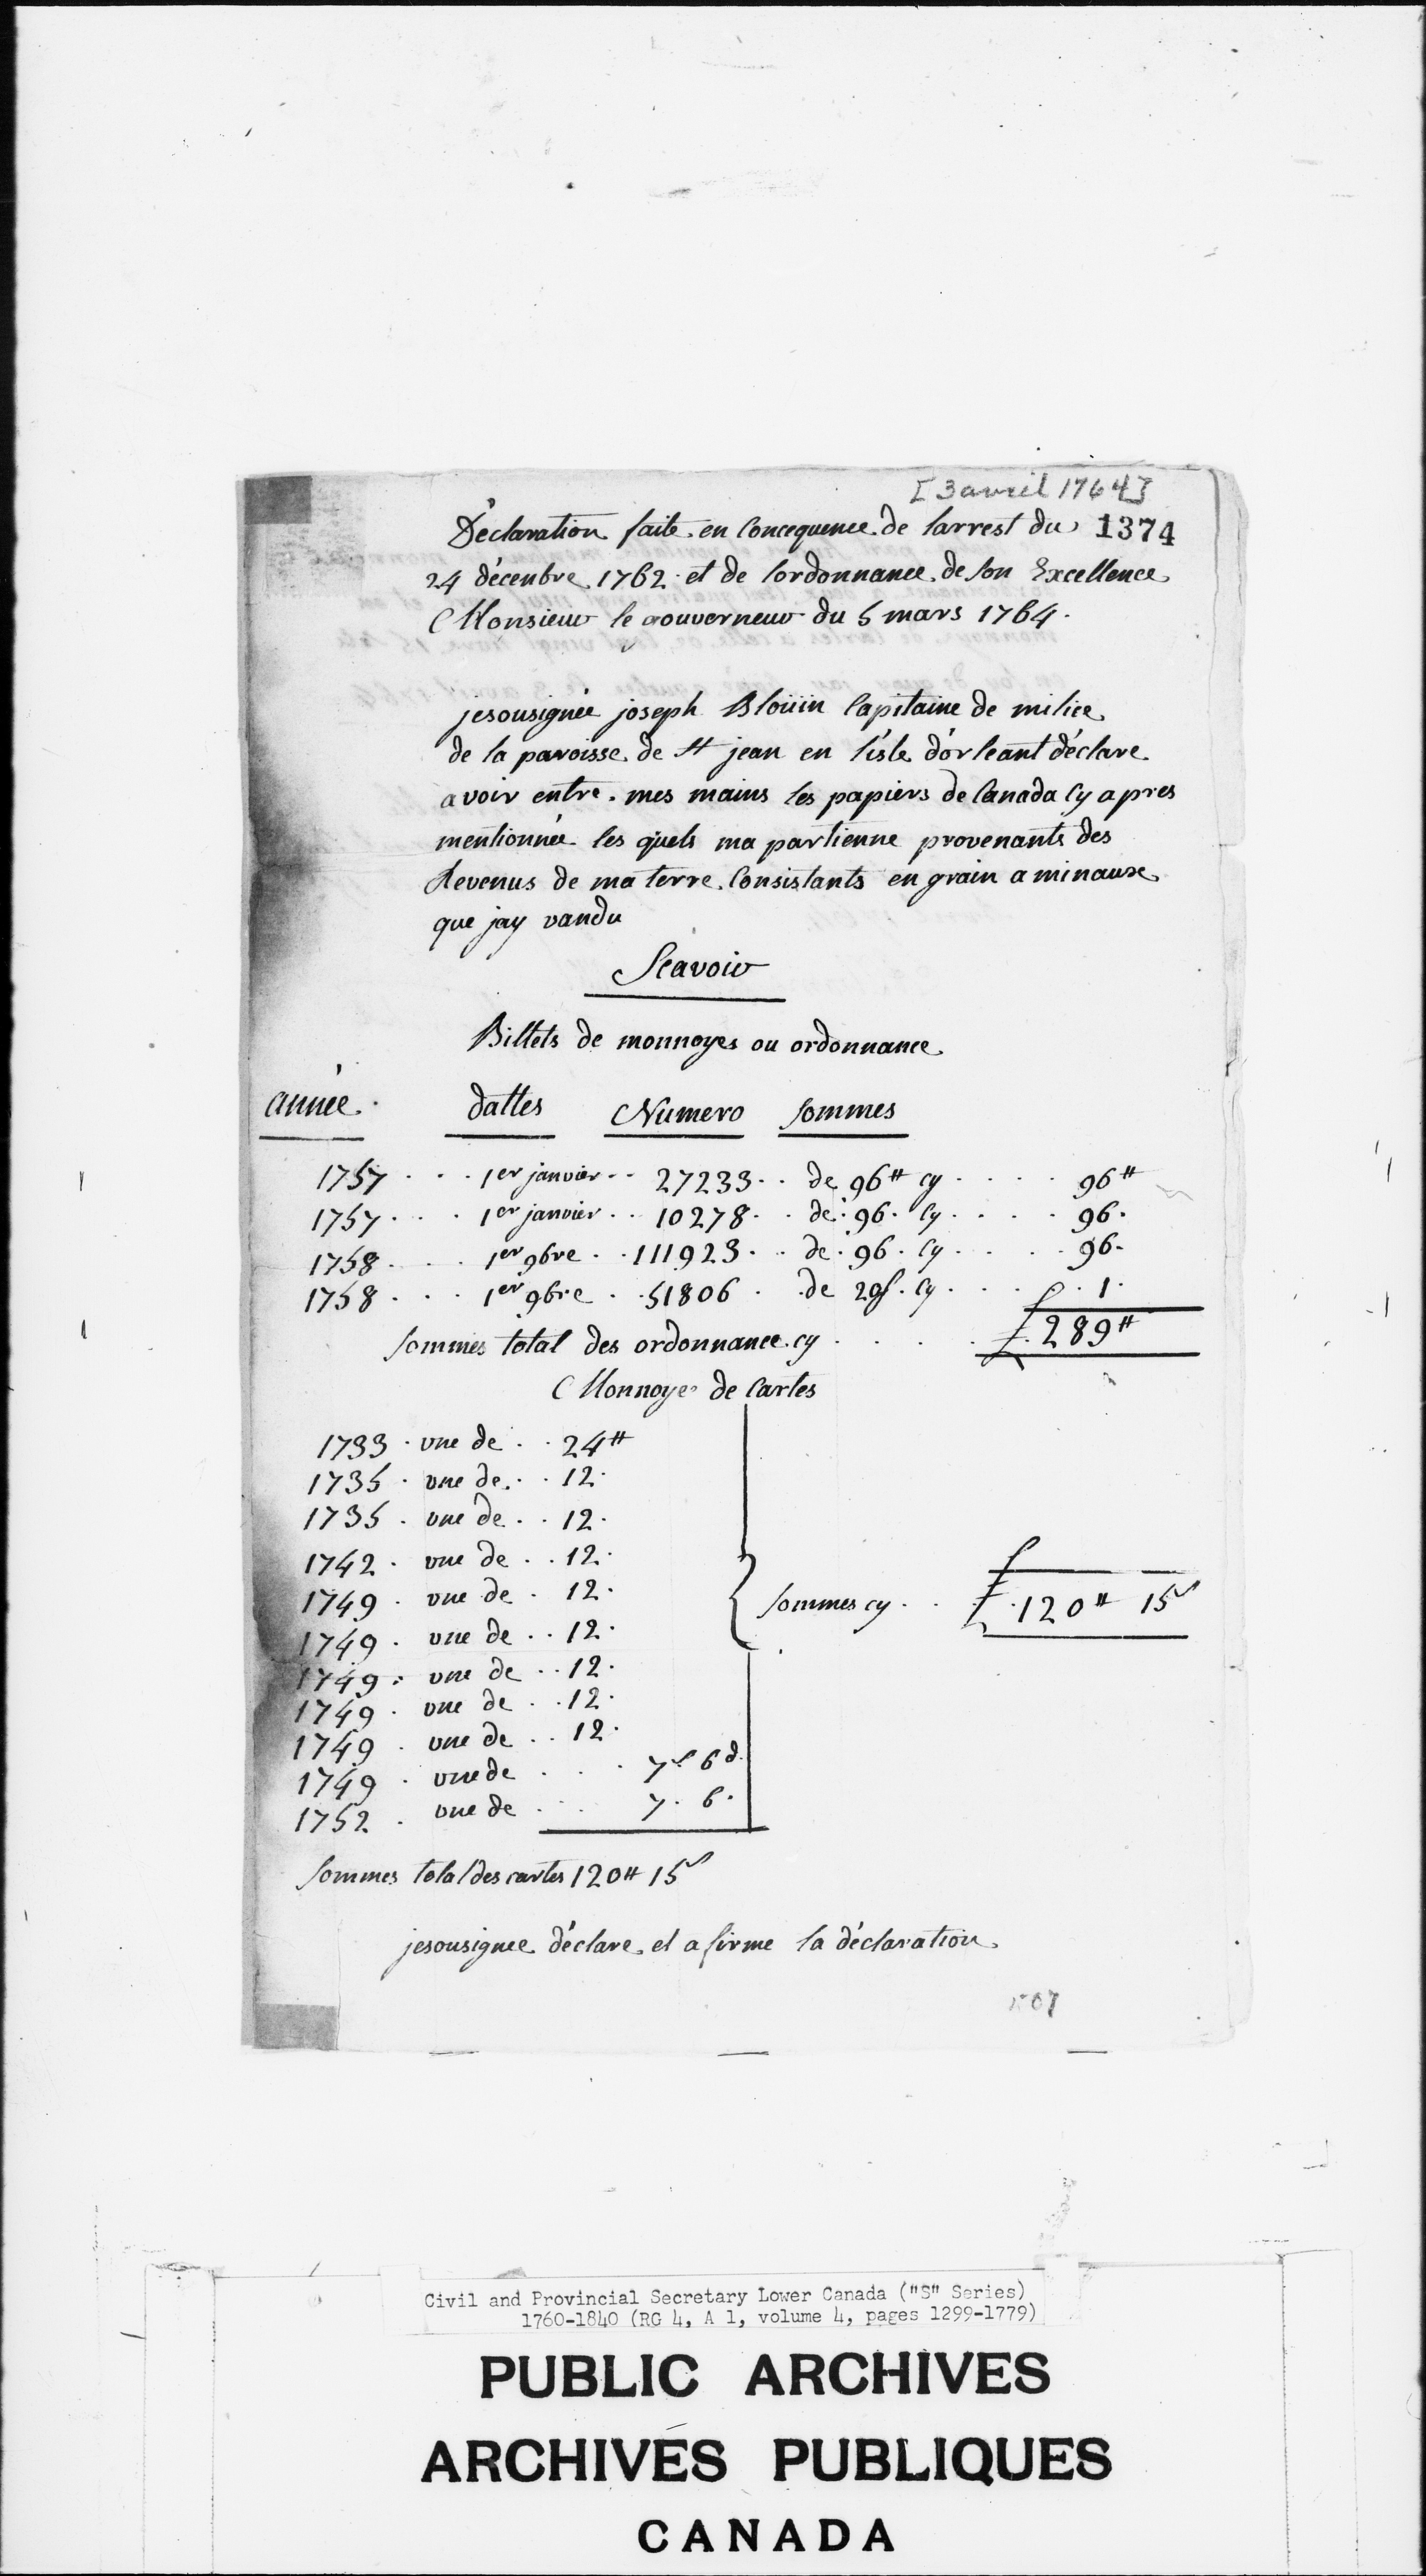 [3 avril 1764]
Déclaration faite en Concequence de larrest du 1374
24 décenbre 1762 et de lordonnance de son Excellence
Monsieur le gouverneur du 5 mars 1764.
jesousignée joseph Bloüin Capitaine de milice
de la paroisse de St jean en l'isle d'orleant déclare
avoir entre mes mains les papiers de Canada Cy apres
mentionnée les quels ma partienne provenants des
Revenus de ma terre Consistants en grain a minaux
que jay vandu
Scavoir
Billets de monnoyes ou ordonnance
année dattes Numero sommes
1757 . . . 1er janvier . . 27233 . . de 96# cy . . . . 96#
1757 . . . 1er janvier . . 10278 . . de 96. Cy . . . . 96.
1758 . . . 1er 9bre . . 111923 . . de 96. Cy . . . . 96.
1758 . . . 1er 9bre . . 51806 . . de 20s. Cy . . . . 1.
sommes total des ordonnance cy . . . . 289#
Monnoye de Cartes
1733 . une de . . 24#
1735 . une de . . 12.
1735 . une de . . 12.
1742 . une de . . 12.
1749 . une de . 12.
1749 . une de . . 12.
1749 . une de . . 12.
1749 . une de . . 12.
1749 . une de . . 12.
1749 . une de . . . 7s 6d.
1752 . une de . . . 7. 6.
sommes cy . . . 120# 15s
sommes total des cartes 120# 15s
jesousignee déclare et afirme la déclaration
1507
Civil and Provincial Secretary Lower Canada ("S" Series)
1760-1840 (RG 4, A 1, volume 4, pages 1299-1779)
PUBLIC ARCHIVES
ARCHIVES PUBLIQUES
CANADA